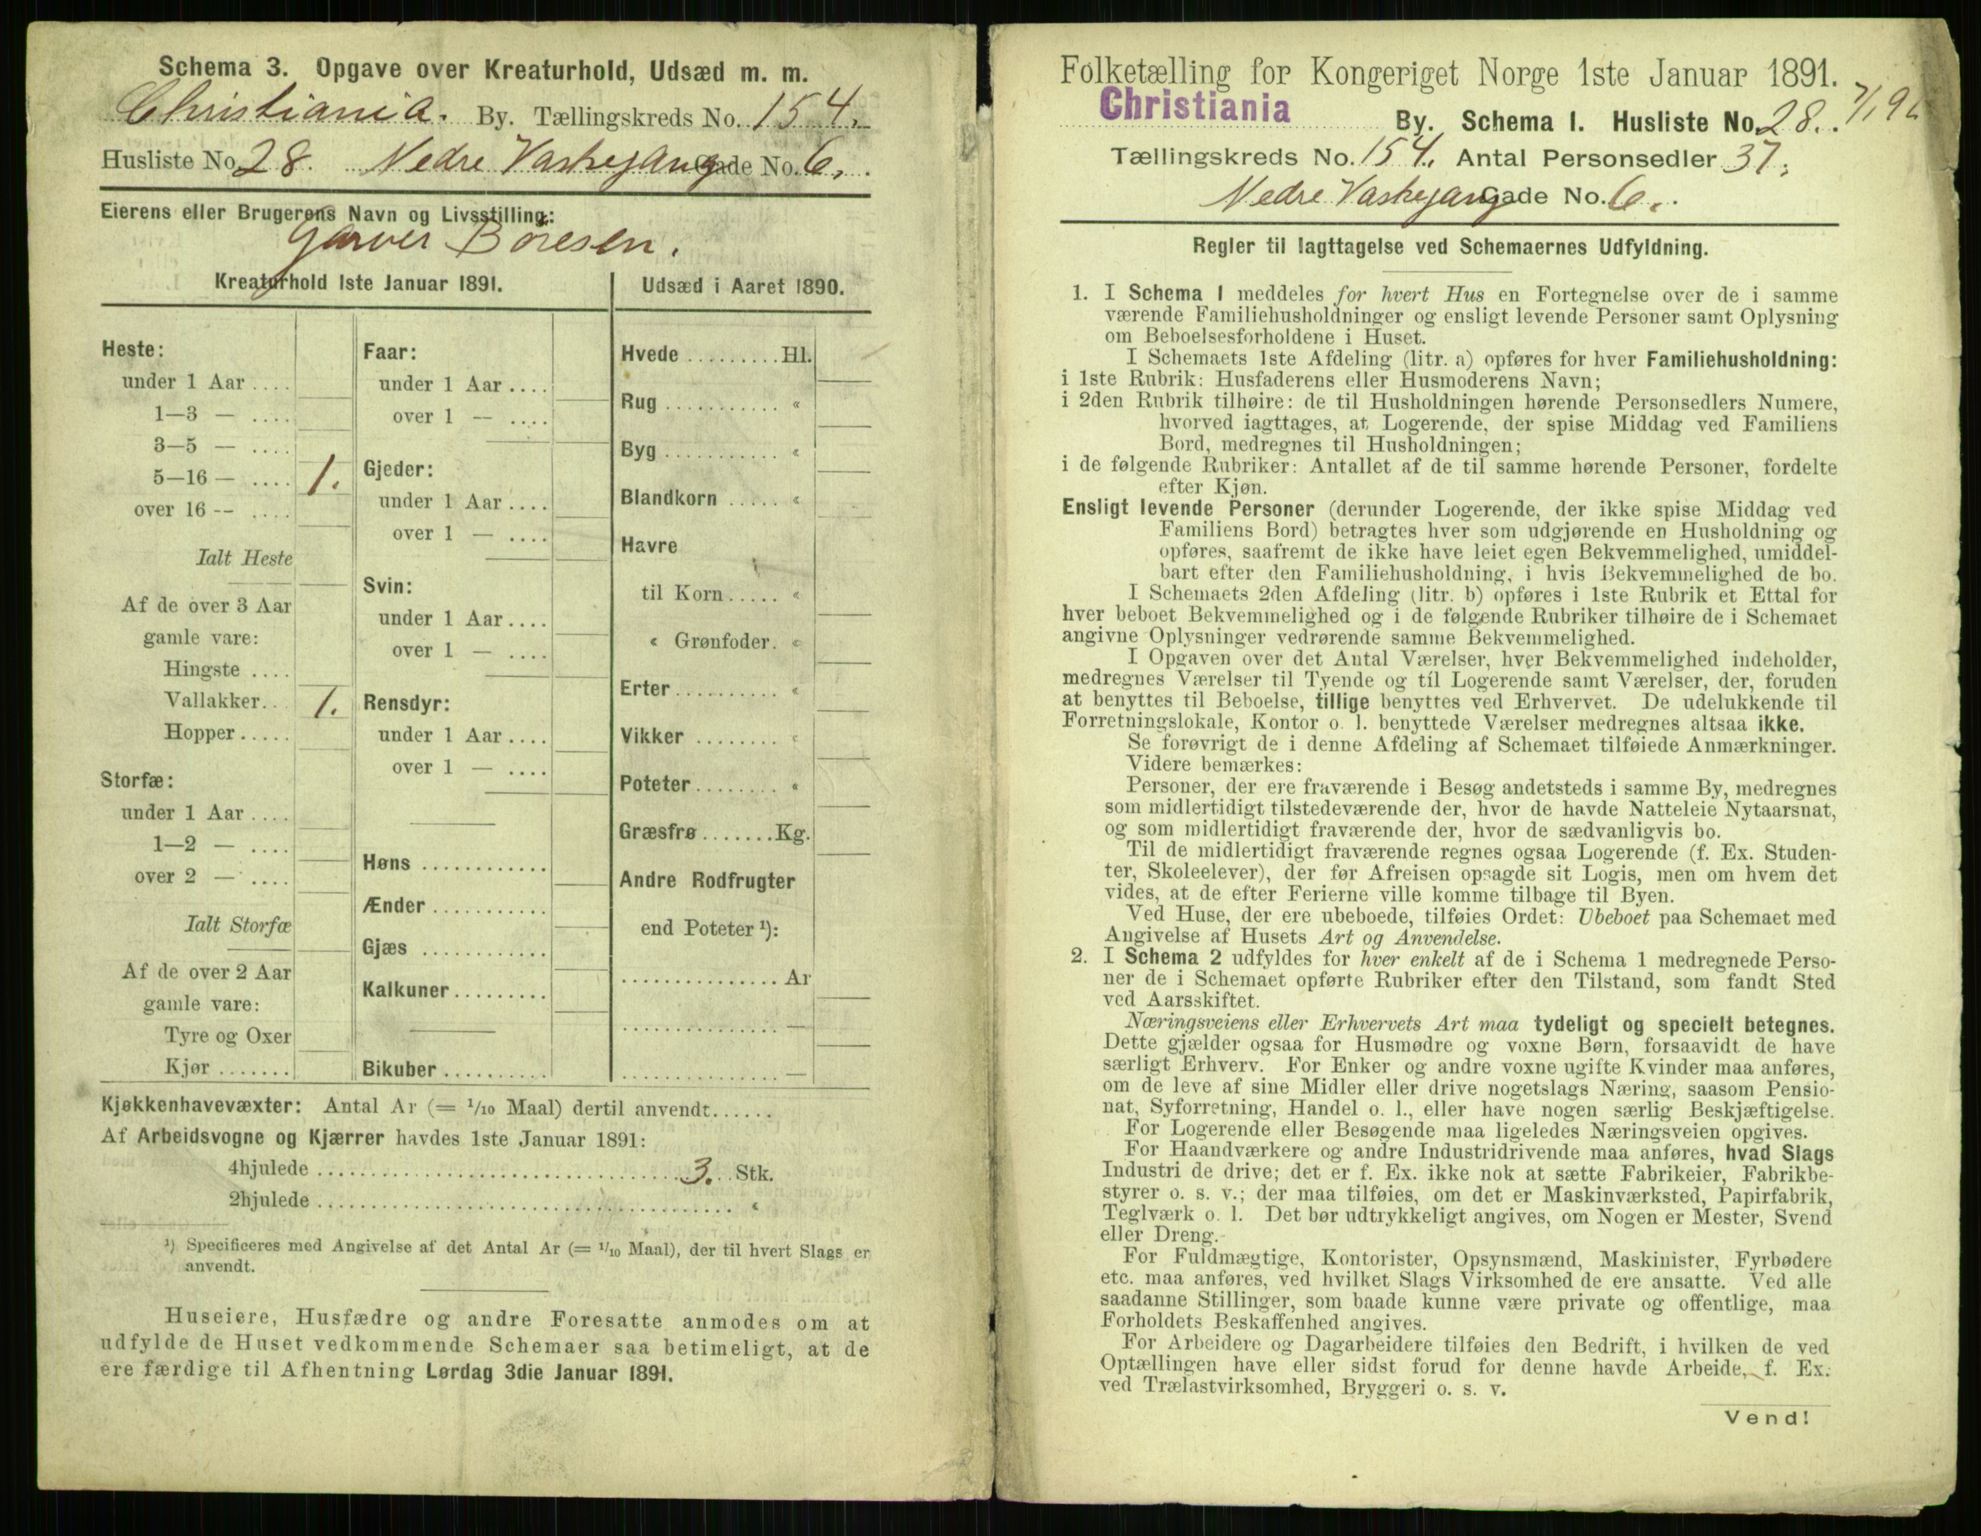 Schema 3. Opgave over Kreaturhold, Udsæd m. m.
Christiania. By. Tællingskreds No. 154.
Husliste No. 28. Nedre Vaskegang Gade No. 6.
Eierens eller Brugerens Navn og Livsstilling:
Garver Boresen.
Kreaturhold 1ste Januar 1891.
Heste:
under 1 Aar ....
1—3 — ....
3—5 — ....
5—16 — .... 1.
over 16 -- ....
Ialt Heste
Af de over 3 Aar
gamle vare:
Hingste ....
Vallakker.. 1.
Hopper.....
Storfæ:
under 1 Aar ....
1—2 — ....
over 2 — ....
Ialt Storfæ
Af de over 2 Aar
gamle vare:
Tyre og Oxer
Kjør .......
Faar:
under 1 Aar ....
over 1 — ....
Gjeder:
under 1 Aar ....
over 1 — ....
Svin:
under 1 Aar ....
over 1 — ....
Rensdyr:
under 1 Aar ....
over 1 — ....
Høns ............
Ænder ...........
Gjæs ............
Kalkuner.........
Bikuber ..........
Udsæd i Aaret 1890.
Hvede ......... Hl.
Rug ........... «
Byg ........... «
Blandkorn ..... «
Havre
til Korn ..... «
« Grønfoder. «
Erter.......... «
Vikker ........ «
Poteter ........ «
Græsfrø ....... Kg.
Andre Rodfrugter
end Poteter ¹):
............... Ar
............... —
............... —
Kjøkkenhavevæxter: Antal Ar (= 1/10 Maal) dertil anvendt......
Af Arbeidsvogne og Kjærrer havdes 1ste Januar 1891:
4hjulede .................................. 3. Stk.
2hjulede .................................. «
¹) Specificeres med Angivelse af det Antal Ar (= 1/10 Maal), der til hvert Slags er
anvendt.
Huseiere, Husfædre og andre Foresatte anmodes om at
udfylde de Huset vedkommende Schemaer saa betimeligt, at de
ere færdige til Afhentning Lørdag 3die Januar 1891.
Folketælling for Kongeriget Norge 1ste Januar 1891.
Christiania By. Schema I. Husliste No. 28.
Tællingskreds No. 154. Antal Personsedler 37.
Nedre Vaskegang Gade No. 6.
Regler til Iagttagelse ved Schemaernes Udfyldning.
1. I Schema 1 meddeles for hvert Hus en Fortegnelse over de i samme
værende Familiehusholdninger og ensligt levende Personer samt Oplysning
om Beboelsesforholdene i Huset.
I Schemaets 1ste Afdeling (litr. a) opføres for hver Familiehusholdning:
i 1ste Rubrik: Husfaderens eller Husmoderens Navn;
i 2den Rubrik tilhøire: de til Husholdningen hørende Personsedlers Numere,
hvorved iagttages, at Logerende, der spise Middag ved Familiens
Bord, medregnes til Husholdningen;
i de følgende Rubriker: Antallet af de til samme hørende Personer, fordelte
efter Kjøn.
Ensligt levende Personer (derunder Logerende, der ikke spise Middag ved
Familiens Bord) betragtes hver som udgjørende en Husholdning og
opføres, saafremt de ikke have leiet egen Bekvemmelighed, umiddel-
bart efter den Familiehusholdning, i hvis Bekvemmelighed de bo.
I Schemaets 2den Afdeling (litr. b) opføres i 1ste Rubrik et Ettal for
hver beboet Bekvemmelighed og i de følgende Rubriker tilhøire de i Schemaet
angivne Oplysninger vedrørende samme Bekvemmelighed.
I Opgaven over det Antal Værelser, hver Bekvemmelighed indeholder,
medregnes Værelser til Tyende og til Logerende samt Værelser, der, foruden
at benyttes til Beboelse, tillige benyttes ved Erhvervet. De udelukkende til
Forretningslokale, Kontor o. l. benyttede Værelser medregnes altsaa ikke.
Se forøvrigt de i denne Afdeling af Schemaet tilføiede Anmærkninger.
Videre bemærkes:
Personer, der ere fraværende i Besøg andetsteds i samme By, medregnes
som midlertidigt tilstedeværende der, hvor de havde Natteleie Nytaarsnat,
og som midlertidigt fraværende der, hvor de sædvanligvis bo.
Til de midlertidigt fraværende regnes ogsaa Logerende (f. Ex. Studen-
ter, Skoleelever), der før Afreisen opsagde sit Logis, men om hvem det
vides, at de efter Ferierne ville komme tilbage til Byen.
Ved Huse, der ere ubeboede, tilføies Ordet: Ubeboet paa Schemaet med
Angivelse af Husets Art og Anvendelse.
2. I Schema 2 udfyldes for hver enkelt af de i Schema 1 medregnede Perso-
ner de i Schemaet opførte Rubriker efter den Tilstand, som fandt Sted
ved Aarsskiftet.
Næringsveiens eller Erhvervets Art maa tydeligt og specielt betegnes.
Dette gjælder ogsaa for Husmødre og voxne Børn, forsaavidt de have
særligt Erhverv. For Enker og andre voxne ugifte Kvinder maa anføres,
om de leve af sine Midler eller drive nogetslags Næring, saasom Pensio-
nat, Syforretning, Handel o. l., eller have nogen særlig Beskjæftigelse.
For Logerende eller Besøgende maa ligeledes Næringsveien opgives.
For Haandværkere og andre Industridrivende maa anføres, hvad Slags
Industri de drive; det er f. Ex. ikke nok at sætte Fabrikeier, Fabrikbe-
styrer o. s. v.; der maa tilføies, om det er Maskinværksted, Papirfabrik,
Teglværk o. l. Det bør udtrykkeligt angives, om Nogen er Mester, Svend
eller Dreng.
For Fuldmægtige, Kontorister, Opsynsmænd, Maskinister, Fyrbødere
etc. maa anføres, ved hvilket Slags Virksomhed de ere ansatte. Ved alle
saadanne Stillinger, som baade kunne være private og offentlige, maa
Forholdets Beskaffenhed angives.
For Arbeidere og Dagarbeidere tilføies den Bedrift, i hvilken de ved
Optællingen have eller sidst forud for denne havde Arbeide, f. Ex.
ved Trælastvirksomhed, Bryggeri o. s. v.
Vend!